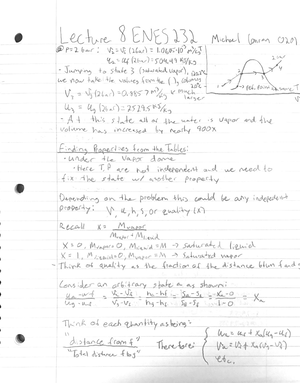 Lecture 8 ENES 232
@ P=2 bar: V₂=Vf (2bar)=1.0605·10⁻³ m³/kg
u₂=uf (2bar)=504.49 kJ/kg
· Jumping to state 3 (saturated vapor),
we now take the values for the
V₃ = Vg (2bar) = 0.8857 m³/kg much larger
u₃ = ug (2bar) = 2529.5 kJ/kg
· At this state all of the water is vapor and the
volume has increased by nearly 900x
Finding Properties from the Tables:
· Under the vapor dome
· Here T, P are not independent and we need to
fix the state w/ another property
Depending on the problem this could be any independent
property: V, u, h, s, or quality (x)
Recall x = Mvapor
Mvapor + Mliquid
X = 0, Mvapor = 0, Mliquid = M → saturated liquid
X = 1, Mliquid = 0, Mvapor = M → saturated vapor
Think of quality as the fraction of the distance btwn f and g
Consider an arbitrary state a as shown:
ua-uf = Va-Vf = ha-hf = Sa-Sf = Xa-0 = Xa
ug-uf Vg-Vf hg-hf Sg-Sf 1-0
Think of each quantity as being:
"distance from f"
"Total distance f to g"
Therefore: ua = uf + Xa(ug-uf)
Va = Vf + Xa(Vg-Vf)
etc.